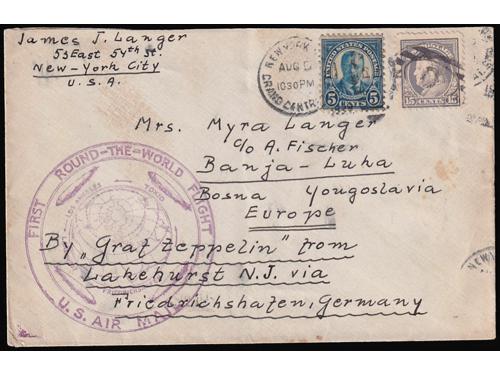 James J. Langer
53 East 54th St.
New-York City
U.S.A.
NEW YORK
AUG
1030 PM
GRAND CENTR
UNITED STATES POSTAGE
5 CENTS 5
POSTAGE
15 CENTS 15
Mrs. Myra Langer
c/o A. Fischer
Banja-Luha
Bosna Yougoslavia
Europe
By „Graf Zeppelin" from
Lakehurst N.J. via
Friedrichshafen, Germany
FIRST ROUND-THE-WORLD FLIGHT
LOS ANGELES
TOKIO
U.S. AIR MAIL
NEW